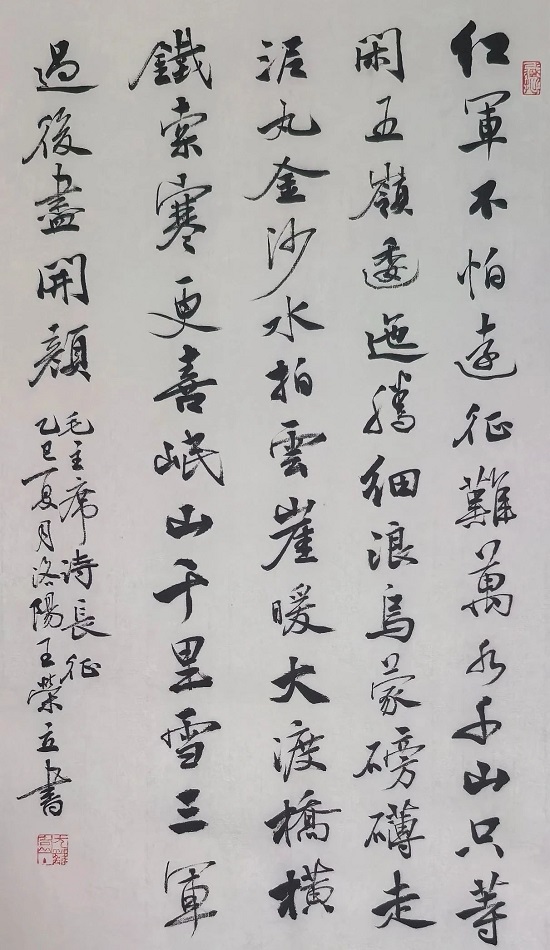 红軍不怕遠征難萬水千山只等
閑五嶺逶迤騰細浪烏蒙磅礴走
泥丸金沙水拍雲崖暖大渡橋橫
鐵索寒更喜岷山千里雪三軍
過後盡開顏
毛主席诗長征
乙巳夏月洛陽王榮立書